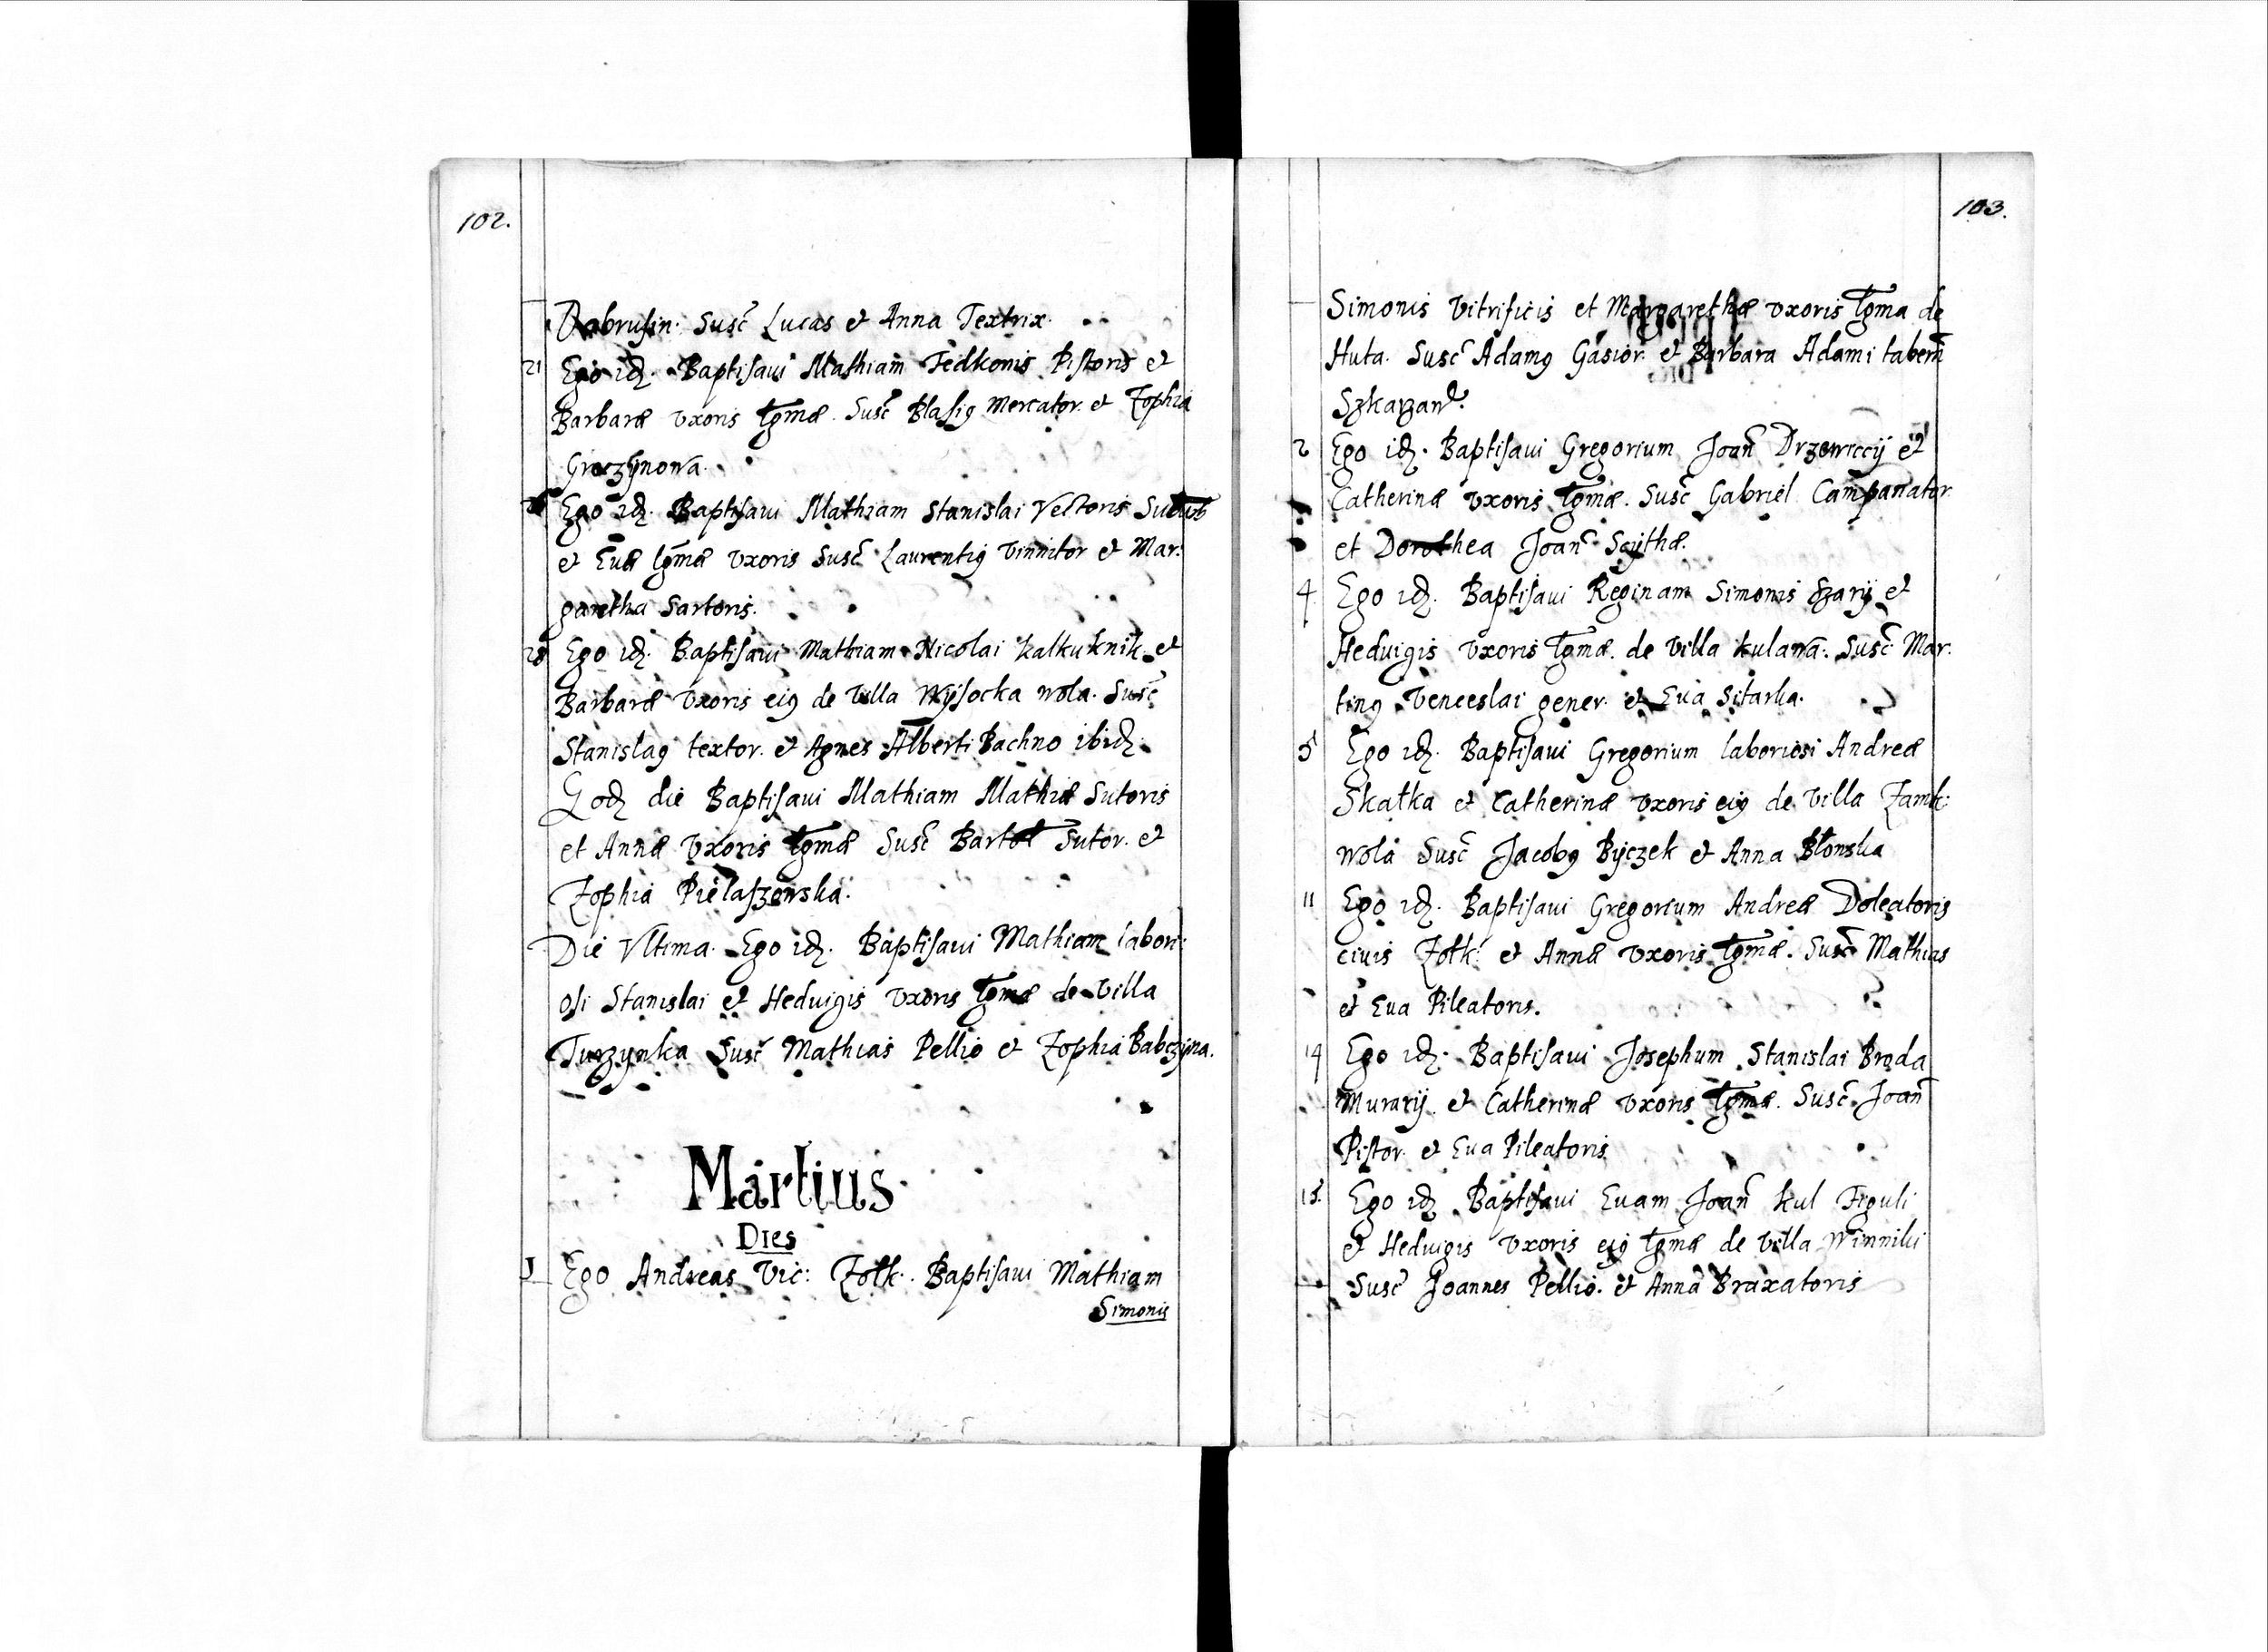 102.
Dabrusin. Susc̃ Lucas et Anna Textrix.
21 Ego idẽ. Baptisaui Mathiam Fedkonis Pistoris et
Barbaræ vxoris lgmæ. Susc̃ Blasiꝰ Mercator. et Zophia
Groczÿnowa.
Ego idẽ. Baptisaui Mathiam Stanislai Vectoris Suburb
et Euæ lgmæ vxoris Susc̃ Laurentiꝰ Vinnitor et Mar:
garetha Sartoris.
28 Ego idẽ. Baptisaui Mathiam Nicolai Kalkuknik et
Barbaræ vxoris eiꝰ de villa Wÿsocka wola. Susc̃
Stanislaꝰ textor. et Agnes Alberti Bachno ibidẽ.
Eodẽ die Baptisaui Mathiam Mathiæ Sutoris
et Annæ vxoris lgmæ Susc̃ Bartol Sutor. et
Zophia Pielaszewska.
Die Vltima. Ego idẽ. Baptisaui Mathiam labori:
osi Stanislai et Heduigis vxoris lgmæ de villa
Turzynka Susc̃ Mathias Pellio et Zophia Babczyna.
Martius.
Dies
1 Ego Andreas Vic: Zolk. Baptisaui Mathiam
Simonis
103.
Simonis Vitrificis et Margarethæ vxoris lgmæ de
Huta. Susc̃ Adamꝰ Gąsior. et Barbara Adami tabern̄
2 Ego idẽ. Baptisaui Gregorium Joan̄ Drzewiccÿ et
Catherinæ vxoris lgmæ. Susc̃ Gabriel Campanator.
et Dorothea Joan̄ Scÿthæ.
4 Ego idẽ. Baptisaui Reginam Simonis Szarÿ et
Heduigis vxoris lgmæ. de villa Kulawa. Susc̃ Mar:
tinꝰ Venceslai gener. et Eua Sitarka.
5 Ego idẽ. Baptisaui Gregorium laboriosi Andreæ
Skałka et Catherinæ vxoris eiꝰ de villa Zamk:
wola Susc̃ Jacobꝰ Bÿczek et Anna Błonska
11 Ego idẽ. Baptisaui Gregorium Andreæ Doleatoris
ciuis Zolk: et Annæ vxoris lgmæ. Susc̃ Mathias
et Eua Pileatoris.
14 Ego idẽ. Baptisaui Josephum Stanislai Broda
Murarÿ. et Catherinæ vxoris lgmæ. Susc̃ Joan̄
Pistor. et Eua Pileatoris
15. Ego idẽ Baptisaui Euam Joan̄ Kul Figuli
et Heduigis vxoris eiꝰ lgmæ de villa Winniki
Susc̃ Joannes Pellio. et Anna Braxatoris